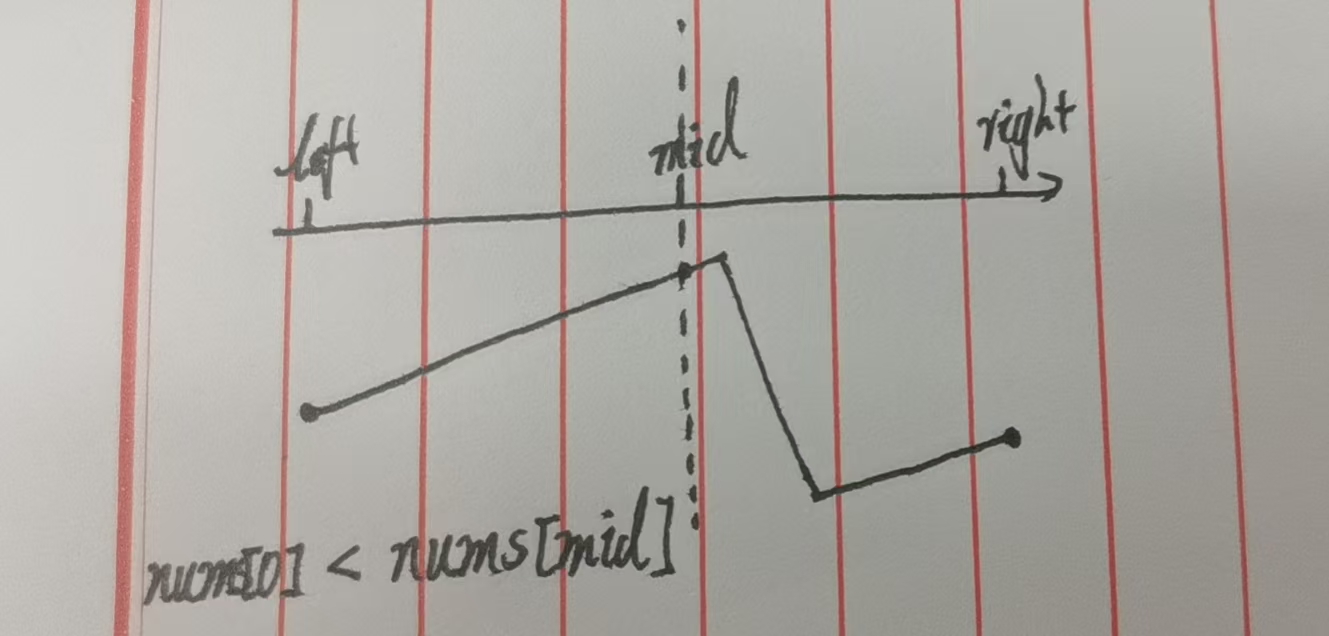 left mid right
nums[0] < nums[mid]